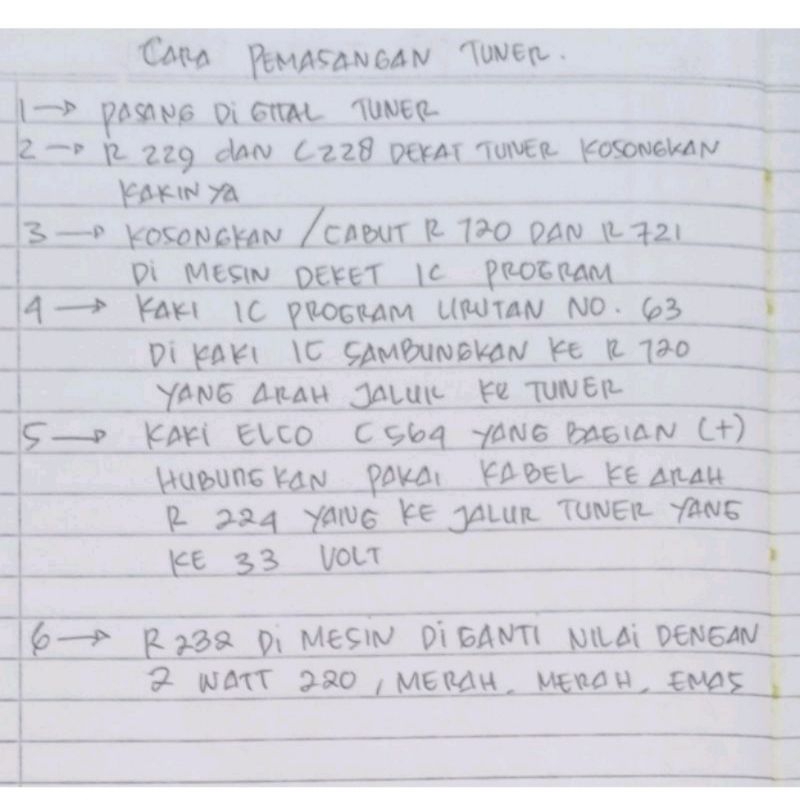 CARA PEMASANGAN TUNER.
1 → PASANG DIGITAL TUNER
2 → R 229 dAN C228 DEKAT TUNER KOSONGKAN
KAKINYA
3 → KOSONGKAN / CABUT R 720 DAN R 721
DI MESIN DEKET IC PROGRAM
4 → KAKI IC PROGRAM URUTAN NO. 63
DI KAKI IC SAMBUNGKAN KE R 720
YANG ARAH JALUR KE TUNER
5 → KAKI ELCO C564 YANG BAGIAN (+)
HUBUNGKAN PAKAI KABEL KE ARAH
R 224 YANG KE JALUR TUNER YANG
KE 33 VOLT
6 → R 232 DI MESIN DI GANTI NILAI DENGAN
2 WATT 220, MERAH, MERAH, EMAS